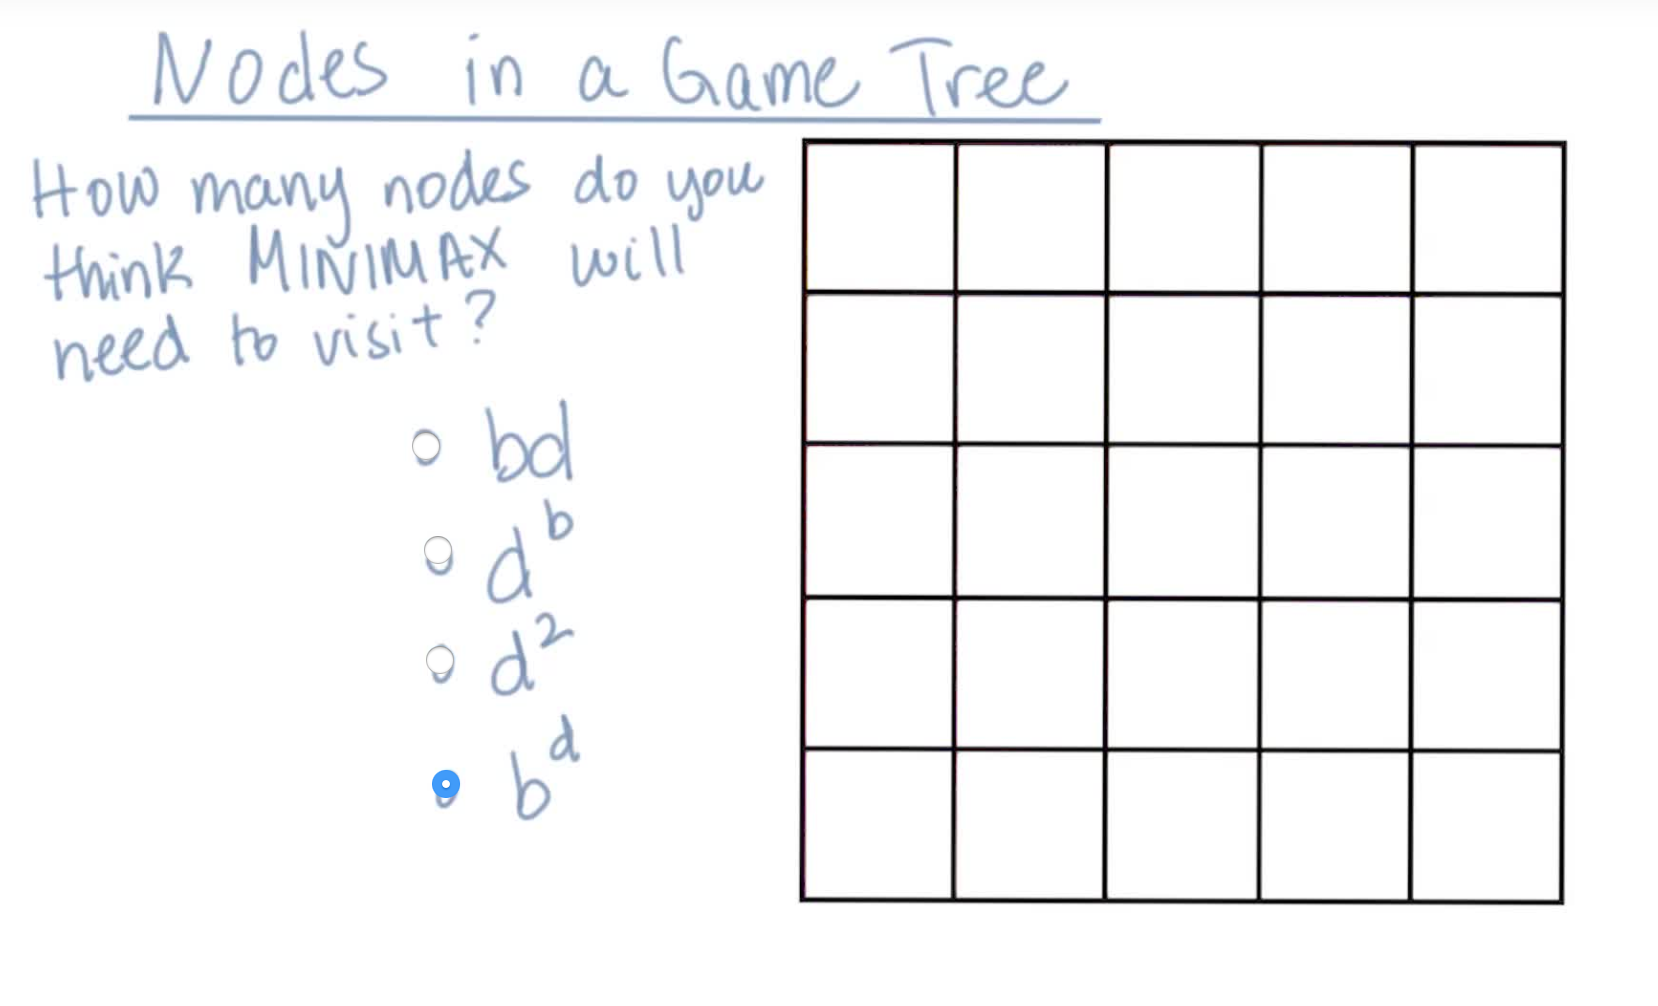 Nodes in a Game Tree
How many nodes do you
think MINIMAX will
need to visit?
bd
d^b
d^2
b^d